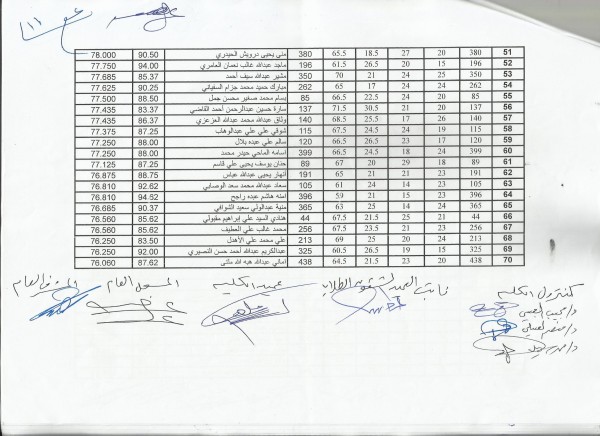 78.000 90.50 منى يحيى درويش الحيدري 380 65.5 18.5 27 20 380 51
77.750 94.00 ماجد عبدالله غالب نعمان العامري 196 61.5 26.5 20 15 196 52
77.685 85.37 مشير عبدالله سيف أحمد 350 70 21 24 25 350 53
77.625 90.25 مبارك حميد محمد حزام السفياني 262 65 17 24 24 262 54
77.500 88.50 بسام محمد صغير محسن جمل 85 66.5 22.5 24 20 85 55
77.435 83.37 سارة حسين عبدالرحمن أحمد القاضي 137 71.5 30.5 21 20 137 56
77.435 86.37 وثاق عبدالله محمد عبدالله العزعزي 140 68.5 25.5 17 26 140 57
77.375 87.25 شوقي علي علي عبدالوهاب 115 67.5 24.5 24 19 115 58
77.250 88.00 سالم علي عبده بلال 120 66.5 26.5 23 17 120 59
77.250 88.00 أسامه الماحي حيدر محمد 399 66.5 24.5 18 24 399 60
77.125 87.25 حنان يوسف يحيى علي قاسم 89 67 20 29 18 89 61
76.875 88.75 أنهار يحيى عبدالله عباس 191 65 21 21 23 191 62
76.810 92.62 سعاد عبدالله محمد سعد الوصابي 105 61 24 14 23 105 63
76.810 94.52 امنه هاشم عبده راجح 396 59 21 15 23 396 64
76.685 90.37 منية عبدالولي سعيد الشوافي 365 63 25 14 24 365 65
76.560 85.62 هنادي السيد علي ابراهيم مقبولي 44 67.5 21.5 25 21 44 66
76.560 85.62 محمد غالب علي العطيف 256 67.5 23.5 21 23 256 67
76.250 83.50 علي محمد علي الأهدل 213 69 25 20 24 213 68
76.250 92.00 عبدالكريم عبدالله أحمد حسن النصيري 325 60.5 26.5 19 15 325 69
76.060 87.62 أماني عبدالله هبه الله مأتى 438 64.5 21.5 23 20 438 70
كنترول الكلية نائب العميد لشئون الطلاب عميد الكلية المسجل العام المشرف العام